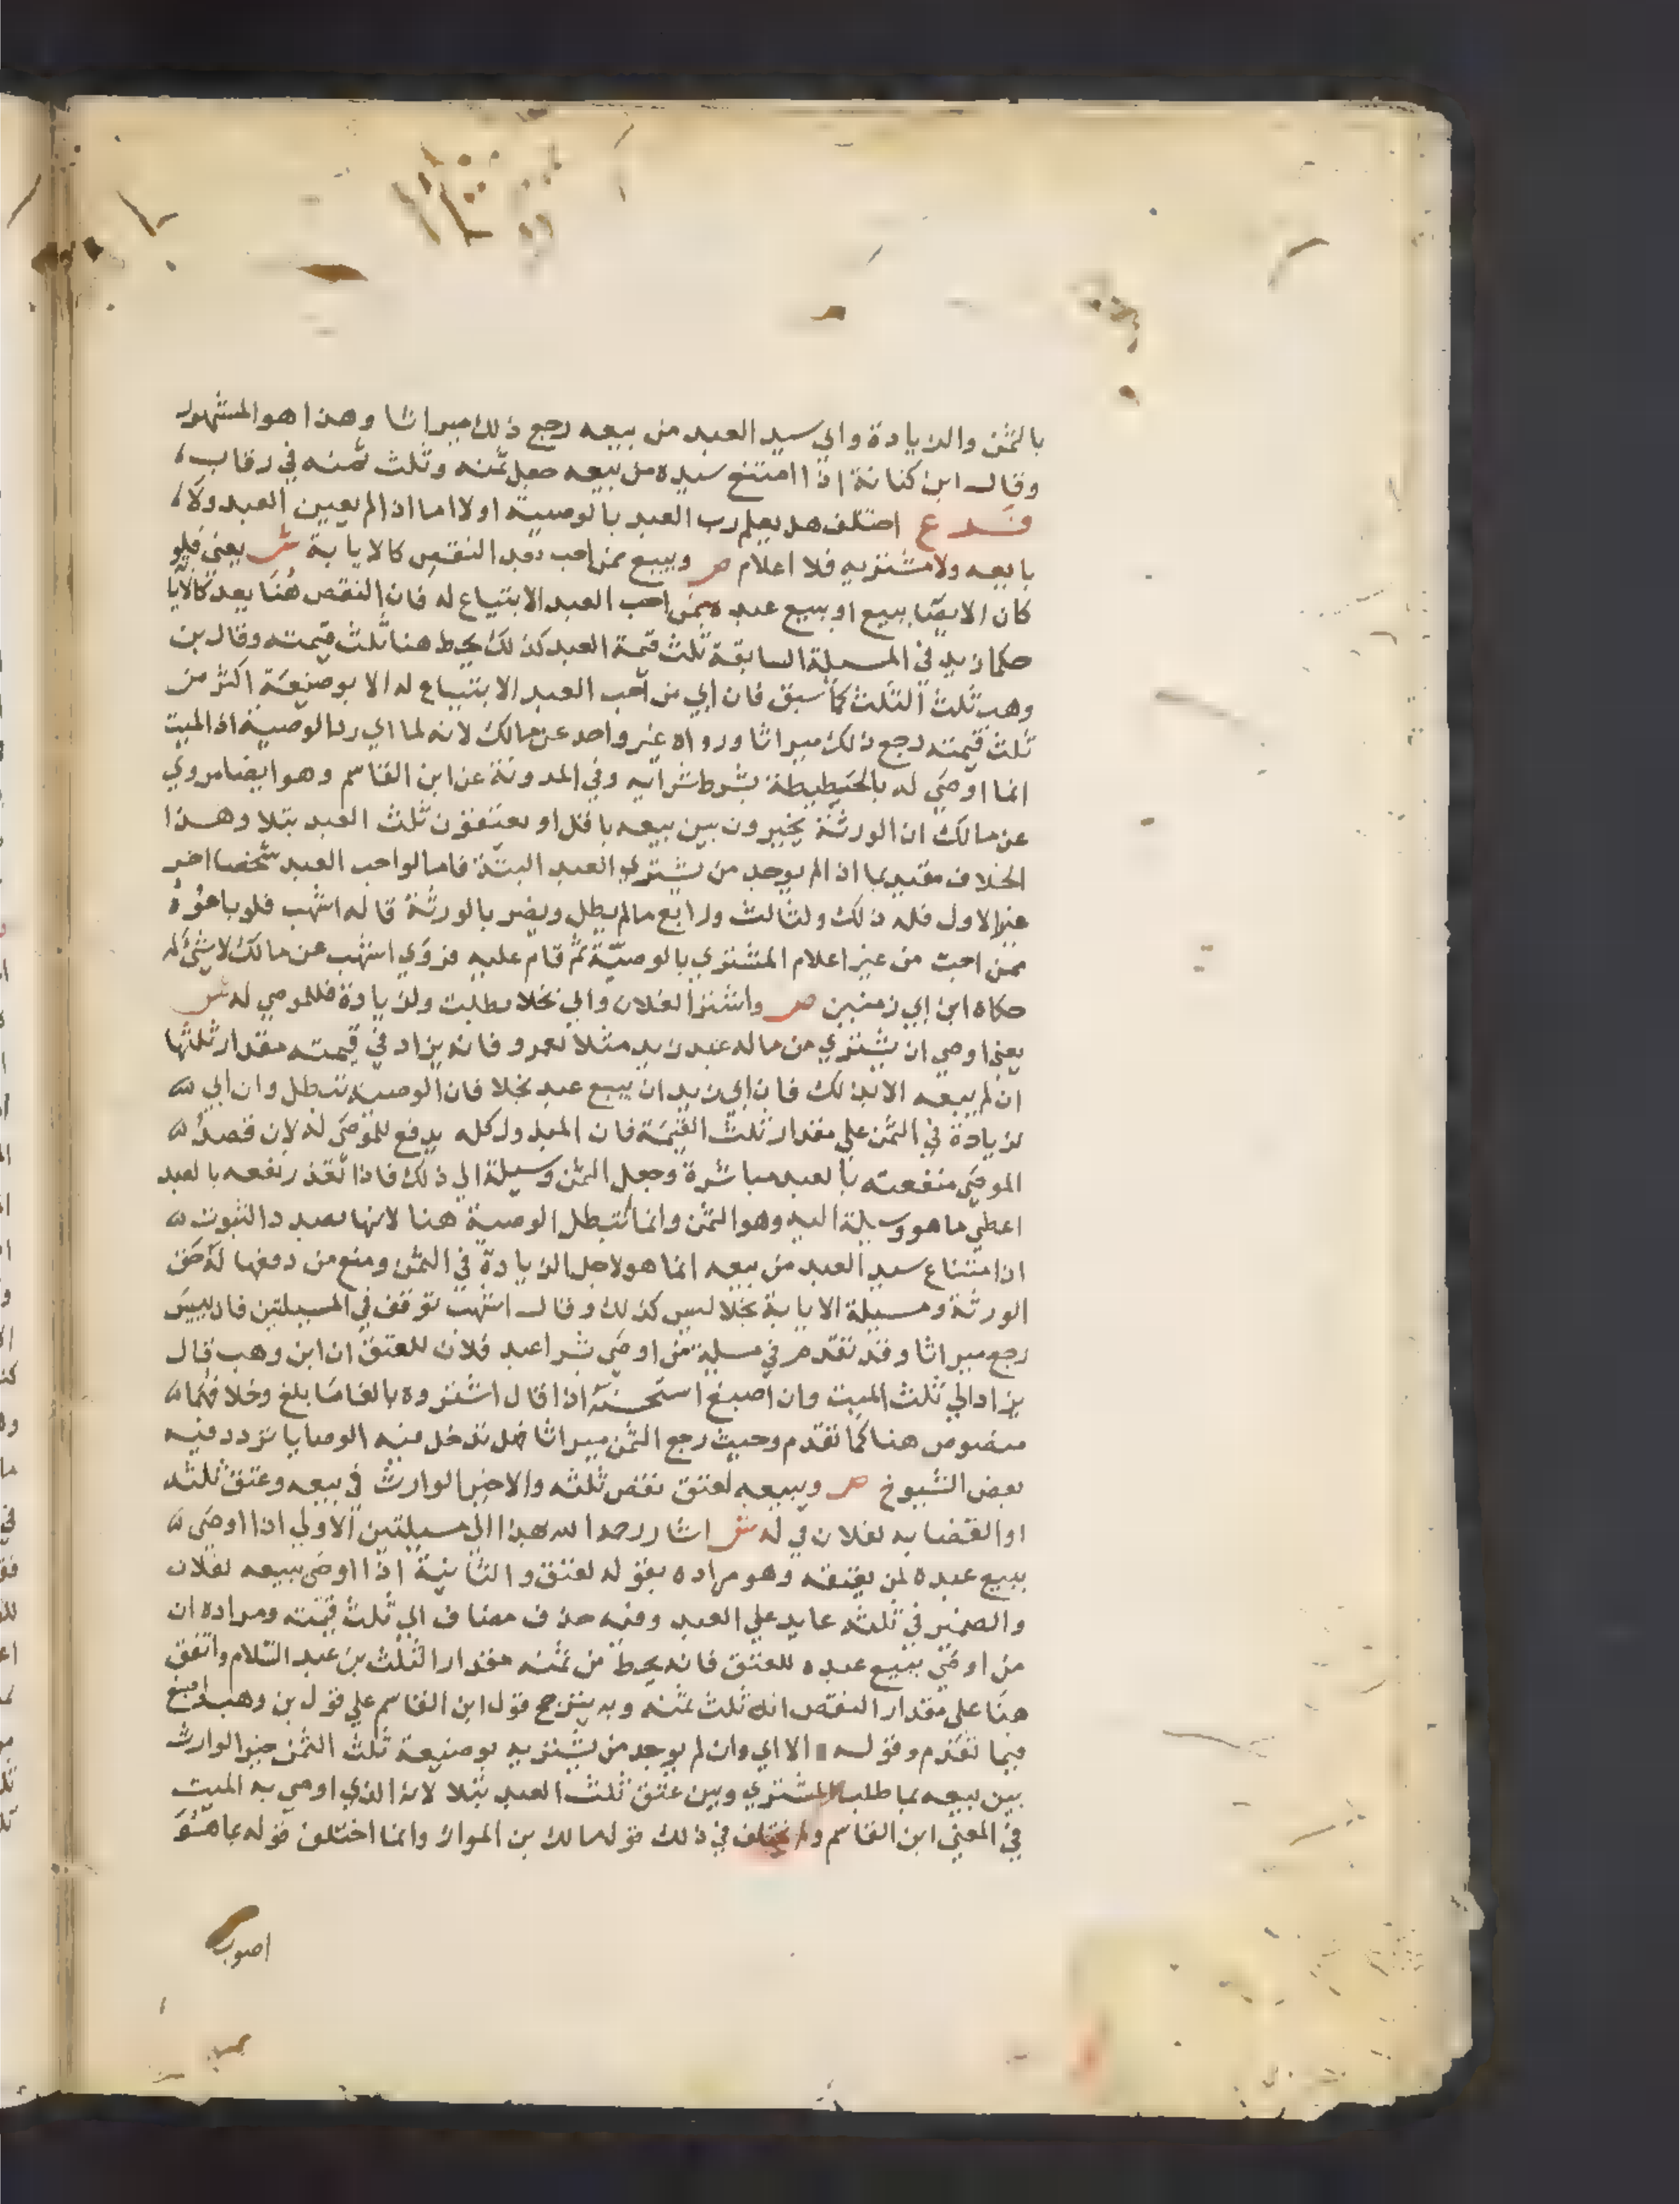 بالثمن والزيادة وابي سيد العبد من بيعه رجع ذلك ميراثا وهذا هو المشهور
وقال ابن كنانة اذا امتنع سيده من بيعه جعل ثمنه وثلث ثمنه في رقاب
فرع اختلف هل يعلم رب العبد بالوصية اولا اما ان لم يعين العبد ولا
بايعه ولا مشتريه فلا اعلام ص وببيع ممن احب بعد النقص كالاباية ش يعني فلو
كان الايصا ببيع او ببيع عبده ممن احب العبد الابتياع له فان النقص هنا بعد كالابا
حكمان يد في المسيلة السابقة ثلث قيمة العبد كذلك يحط هنا ثلث قيمته وقال بن
وهب ثلث الثلث كما سبق فان ابي من احب العبد الابتياع له الا بوضيعة اكثر من
ثلث قيمته رجع ذلك ميراثا ورواه غير واحد عن مالك لانه لما ابي رد الوصية اذ الميت
انما اوصي له بالحطيطة بشرط شرايه وفي المدونة عن ابن القاسم وهو ايضا مروي
عن مالك ان الورثة يخيرون بين بيعه باقل او يعتقون ثلث العبد بتلا وهذا
الخلاف مقيد بما ان لم يوجد من يشتري العبد البتة فاما لو احب العبد شخصا اخر
غير الاول فله ذلك ولثالث ورابع ما لم يطل ويضر بالورثة قاله اشهب فلو باعوه
ممن احب من غير اعلام المشتري بالوصية ثم قام عليه فروي اشهب عن مالك لا شي له
حكاه ابن ابي زمنين ص واشتر الفلان وابي بخلا بطلت ولزيادة فللموصي له ش
يعني اوصي ان يشتري من ماله عبد زيد مثلا لعمرو فانه يزاد في قيمته مقدار ثلثها
ان لم يبعه الا بذلك فان ابي زيد ان يبيع عبد بخلا فان الوصية تبطل وان ابي
لزيادة في الثمن علي مقدار ثلث القيمة فان المبذول كله يدفع للموصي له لان قصد
الموصي منفعته بالعبد مباشرة وجعل الثمن وسيلة الي ذلك فاذا تعذر نفعه بالعبد
اعطي ما هو وسيلة اليه وهو الثمن وانما تبطل الوصية هنا لانها بصدد الثبوت
اذ امتناع سيد العبد من بيعه انما هو لاجل الزيادة في الثمن ومنع من دفعها له حق
الورثة ومسيلة الاباية بخلا ليس كذلك وقال اشهب توقف في المسيلتين فان بيس
رجع ميراثا وقد تقدم في مسلة من اوصي بشرا عبد فلان للعتق ان ابن وهب قال
يزاد الي ثلث الميت وان اصبغ استحسنه اذا قال اشتروه بالغا ما بلغ وخلافهما
منصوص هنا كما تقدم وحيث رجع الثمن ميراثا فهل تدخل فيه الوصايا تردد فيه
بعض الشيوخ ص وببيعه لعتق نقص ثلثه والا خير الوارث في بيعه وعتق ثلثه
او القضا به لفلان في له ش اشار رحمه الله هذا الي مسيلتين الاولي اذا اوصي
ببيع عبده لمن يعتقه وهو مراده بقوله لعتق والثانية اذا اوصي ببيعه لفلان
والضمير في ثلثه عايد علي العبد وفيه حذف مضاف الي ثلث قيمته ومراده ان
من اوصي ببيع عبده للعتق فانه يحط من ثمنه مقدار الثلث بن عبد السلام واتفق
هنا علي مقدار النقص انه ثلث ثمنه وبه يترجح قول ابن القاسم علي قول بن وهب واصبغ
فيما تقدم وقوله الا اي وان لم يوجد من يشتريه بوضيعة ثلث الثمن خير الوارث
بين بيعه بما طلب المشتري وبين عتق ثلث العبد بتلا لانه الذي اوصي به الميت
في المعني ابن القاسم ولم يختلف في ذلك قول مالك بن المواز وانما اختلف قوله بما هو
اصوب